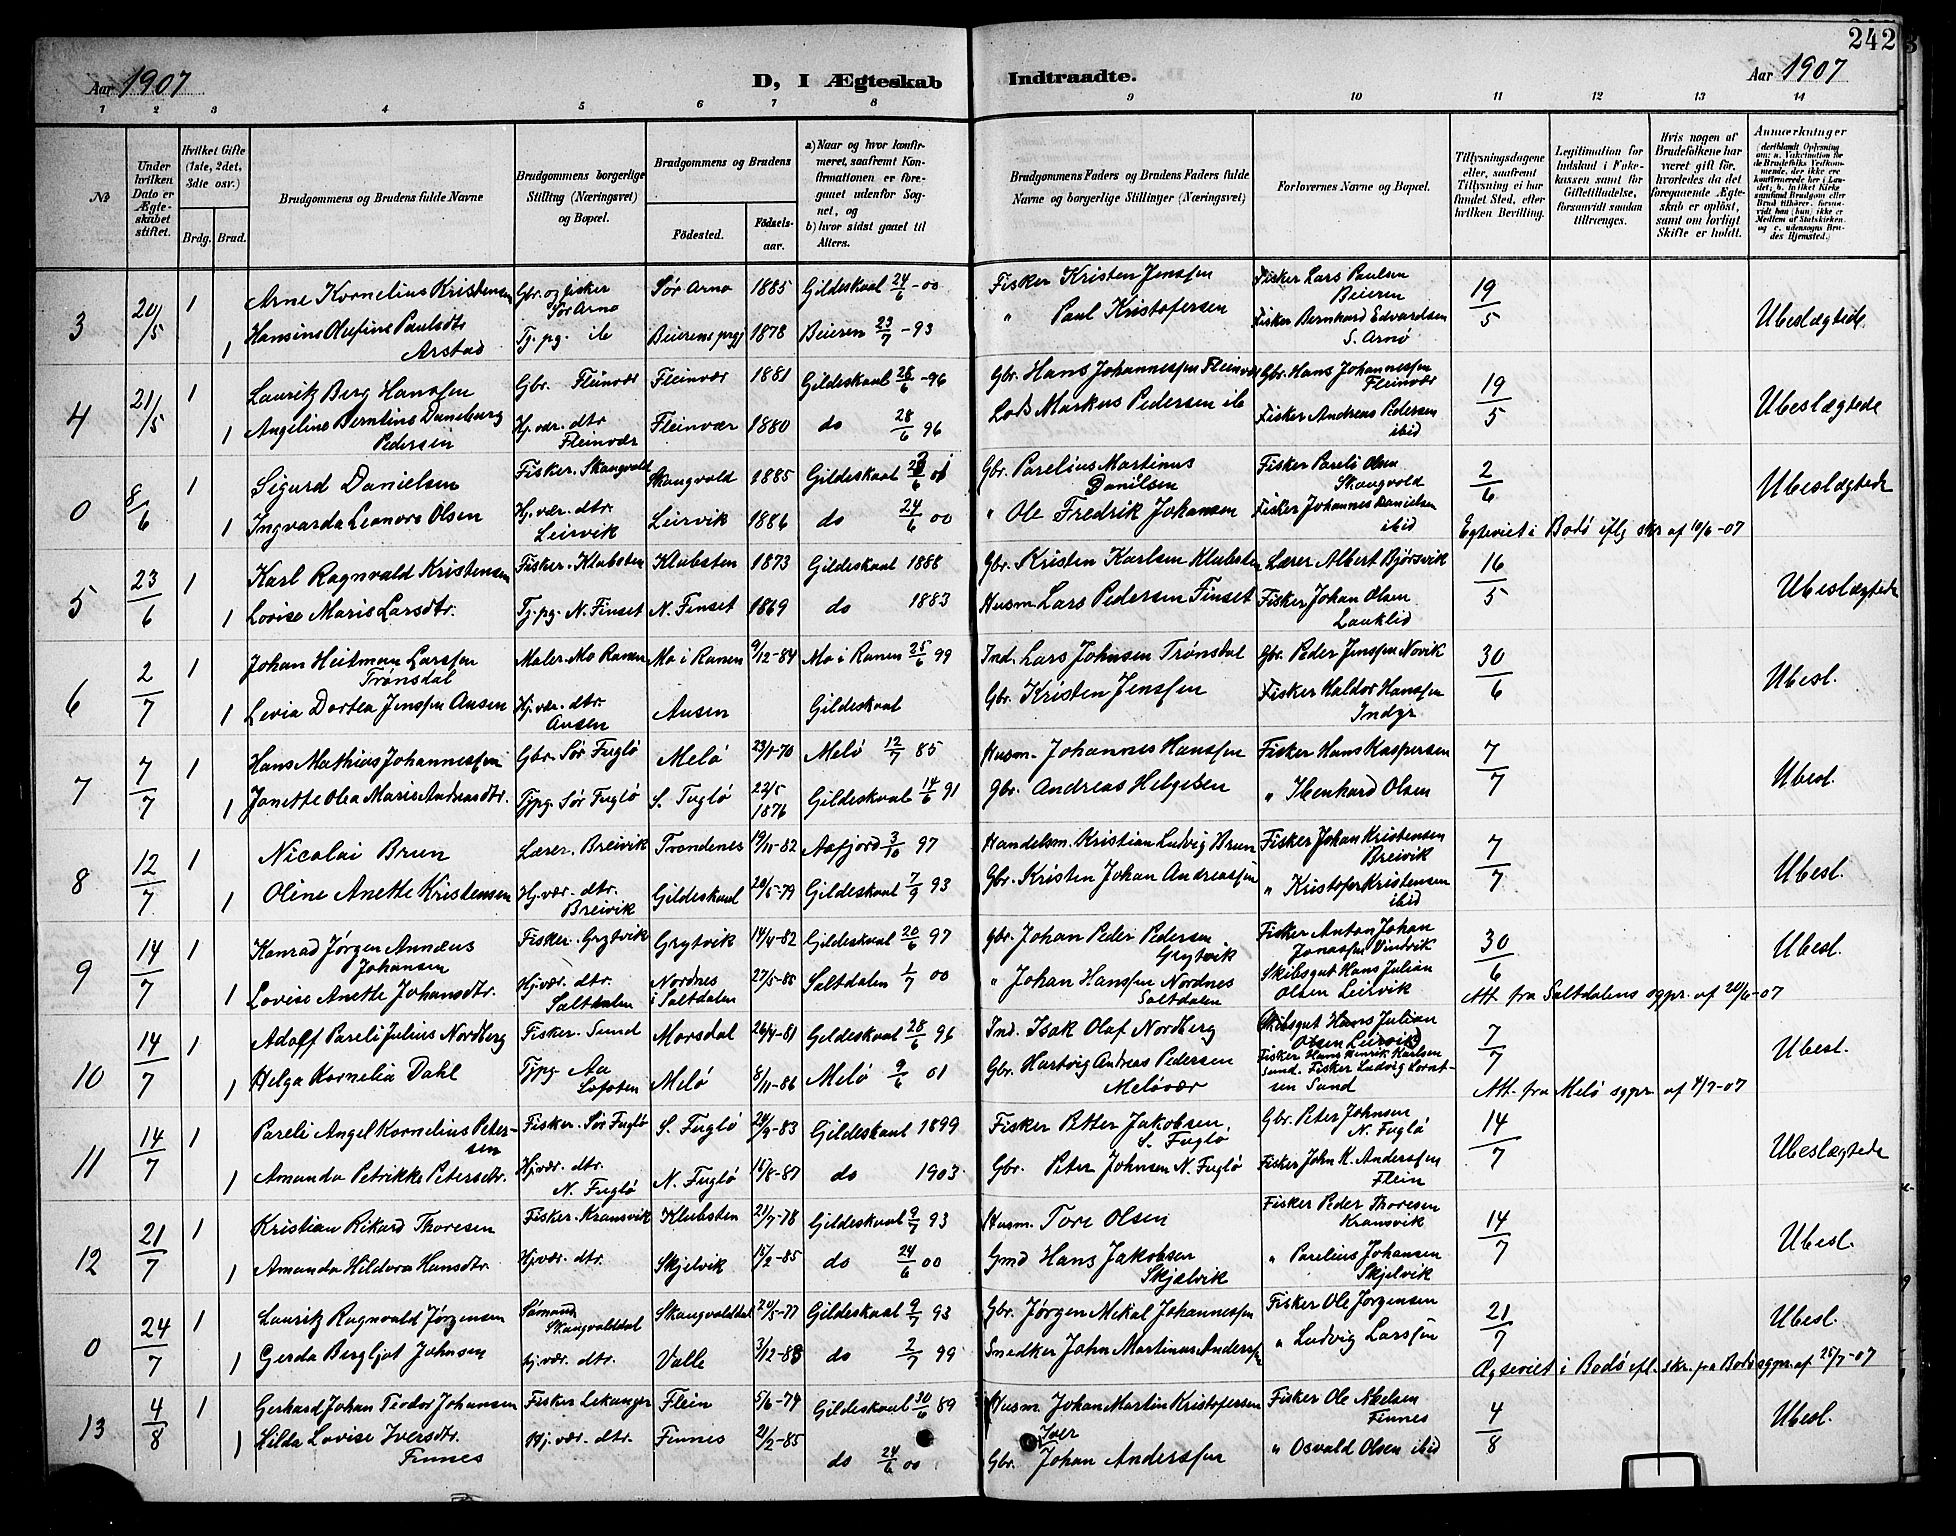 242
Aar 1907
D, I Ægteskab Indtraadte.
Aar 1907
1 2 3 4 5 6 7 8 9 10 11 12 13 14
№
Under hvilken Dato er Ægteskabet stiftet.
Hvilket Gifte (1ste, 2det, 3die osv.)
Brdg. Brud.
Brudgommens og Brudens fulde Navne
Brudgommens borgerlige Stilling (Næringsvei) og Bopæl.
Brudgommens og Brudens
Fødested. Fødselsaar.
a) Naar og hvor konfirmeret, saafremt Konfirmationen er foregaaet udenfor Sognet, og
b) hvor sidst gaaet til Alters.
Brudgommens Faders og Brudens Faders fulde Navne og borgerlige Stillinger (Næringsvei)
Forlovernes Navne og Bopæl.
Tillysningsdagene eller, saafremt Tillysning ei har fundet Sted, efter hvilken Bevilling.
Legitimation for Indskud i Enkekassen samt for Giftetilladelse, forsaavidt saadan tiltrænges.
Hvis nogen af Brudefolkene har været gift før, hvorledes da det foregaaende Ægteskab er opløst, samt om lovligt Skifte er holdt.
Anmærkninger
3 20/5 1 Arne Kornelius Kristensen Gbr. og fisker Sør Arnø Sør Arnø 1885 Gildeskaal 24/6-00 Fisker Kristen Jenssen Fisker Lars Paulsen Beieren 19/5 Ubeslægtede
1 Hansine Olufine Paulsdtr. Arstad Tj. pg. ib Beierens prgj 1878 Beieren 23/7-93 " Paul Kristofersen Fisker Bernhard Edvardsen S. Arnø
4 21/5 1 Lauritz Berg Hanssen Gbr. Fleinvær Fleinvær 1881 Gildeskaal 28/6-96 Gbr. Hans Johannessen Fleinvær Gbr. Hans Johannessen Fleinvær 19/5 Ubeslægtede
1 Angeline Berntine Daneborg Pedersen Hj. vær. dtr. Fleinvær Fleinvær 1880 do 28/6 96 Lods Markus Pedersen ib Fisker Andreas Pedersen ibid
0 8/6 1 Sigurd Danielsen Fisker. Skaugvold Skaugvold 1885 Gildeskaal 23/6 01 Gbr. Parelius Martinus Danilsen Fisker Pareli Olsen Skaugvold 2/6 Ubeslægtede
1 Ingvarda Leonora Olsen Hj. vær. dtr. Leirvik Leirvik 1886 do 24/6 00 " Ole Fredrik Johansen Fisker Johannes Danielsen ibid
Egteviet i Bodø iflg skr af 10/6-07
5 23/6 1 Karl Ragnvald Kristensen Fisker. Klubsten Klubsten 1873 Gildeskaal 1888 Gbr. Kristen Karlsen Klubsten Lærer Albert Bjørsvik 16/5 Ubeslægtede
1 Lovise Marie Larsdtr. Tj. pg. N. Finset N. Finset 1869 do 1883 Husm. Lars Pedersen Finset Fisker Johan Olsen Lauklid
6 2/7 1 Johan Heitman Larssen Trønsdal Maler. Mo Ranen Mo i Ranen 9/12-84 Mo i Ranen 25/6 99 Ind. Lars Johnsen Trønsdal Gbr. Peder Jenssen Novik 30/6 Ubesl.
1 Levia Dortea Jenssen Ausen Hj. vær. dtr. Ausen Ausen Gildeskaal Gbr. Kristen Jenssen Fisker Haldor Hanssen Indyr
7 7/7 1 Hans Mathias Johannessen Gbr. Sør Fuglø Melø 23/1-70 Melø 12/7 85 Husm. Johannes Hanssen Fisker Hans Kaspersen 7/7 Ubesl.
1 Janette Olea Marie Andreasdtr. Tjpg. Sør Fuglø S. Fuglø 22/5 1876 Gildeskaal 14/6 91 Gbr. Andreas Helgesen " Ibenhard Olsen
8 12/7 1 Nicolai Brun Lærer. Breivik Trondenes 19/11-82 Aafjord 3/10 97 Handelsm. Kristian Ludvig Brun Fisker Johan Kristensen Breivik 7/7 Ubesl.
1 Oline Anette Kristensen Hj. vær. dtr. Breivik Gildeskaal 29/5-79 Gildeskaal 7/9 93 Gbr. Kristen Johan Andreassen " Kristofer Kristensen ibid
9 14/7 1 Konrad Jørgen Annæus Johansen Fisker. Grytvik Grytvik 14/4-82 Gildeskaal 20/6 97 Gbr. Johan Peder Pedersen Grytvik Fisker Anton Johan Jonassen Vindvik 30/6 Ubesl.
1 Lovise Anette Johansdtr. Hj. vær. dtr. Saltdalen Nordnes i Saltdalen 27/5-85 Saltdalen 1/7 00 " Johan Hanssen Nordnes Saltdalen Skibsgut Hans Julian Olsen Leirvik
Att. fra Saltdalens sgpr. af 28/6-07
10 14/7 1 Adolf Pareli Julius Nordberg Fisker. Sund Morsdal 26/4-81 Gildeskaal 28/6 96 Ind. Isak Olaf Nordberg Skibsgut Hans Julian Olsen Leirvik 7/7 Ubesl.
1 Helga Kornelia Dahl Tjpg. Aa Lofoten Melø 8/11-86 Melø 9/6 01 Gbr. Hartvig Andreas Pedersen Meløvær Fisker Hans Henrik Karlsen Sund. Fisker Ludvig Lorntsen Sund
Att. fra Melø sgpr. af 4/7-07
11 14/7 1 Pareli Angel Kornelius Petersen Fisker. Sør Fuglø S. Fuglø 24/9-83 Gildeskaal 1899 Fisker Petter Jakobsen, S. Fuglø Gbr. Peter Johnsen, N. Fuglø 14/7 Ubeslægtede
1 Amanda Petrikke Petersdtr. Hj. vær. dtr. N. Fuglø N. Fuglø 15/8-87 do 1903 Gbr. Peter Johnsen N. Fuglø Fisker John K. Anderssen Flein
12 21/7 1 Kristian Rikard Thoresen Fisker. Kransvik Klubsten 21/7-78 Gildeskaal 9/7 93 Husm. Tore Olsen Fisker Peder Thoresen Kransvik 14/7 Ubesl.
1 Amanda Hildora Hansdtr. Hj. vær. dtr. Skjelvik 15/2-85 do 24/6 00 Gmd Hans Jakobsen Skjelvik " Parelius Johansen Skjelvik
0 24/7 1 Lauritz Ragnvald Jørgensen Sømand Skaugvolddal Skaugvolddal 20/5-77 Gildeskaal 9/7 93 Gbr. Jørgen Mekal Johannessen Fisker Ole Jørgensen 21/7 Ubesl.
1 Gerda Bergljot Johnsen Hj. vær. dtr. Valle 3/12-83 do 2/7 99 Snedker John Martinus Anderssen " Ludvig Larssen
Ægteviet i Bodø efl. skr. fra Bodø sgpr. af 25/7-07
13 4/8 1 Gerhard Johan Teodor Johansen Fisker Lekanger Flein 5/6-74 Gildeskaal 30/6 89 Husm. Johan Martin Kristofersen Fisker Ole Nielsen Finnes 4/8 Ubesl.
1 Hilda Lovise Iversdtr. Finnes Hj. vær. dtr. Finnes 21/2-85 do 24/6 00 Gbr. Iver Johan Anderssen " Osvald Olsen ibid